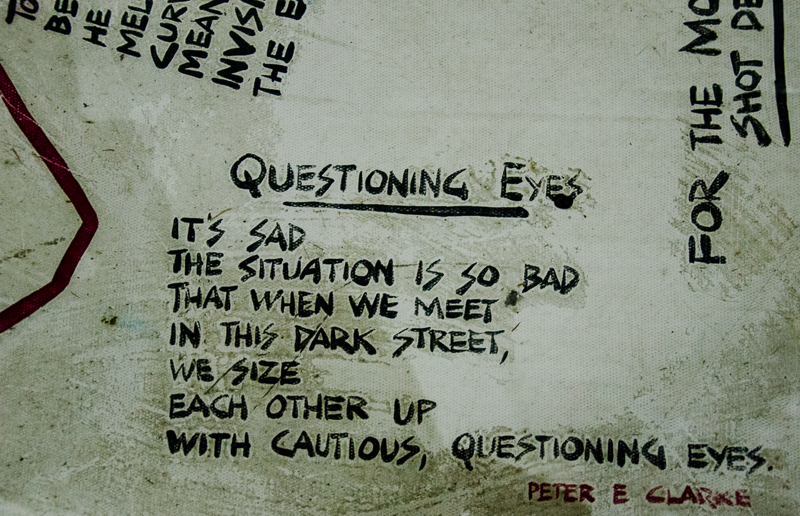 BE
HE
THE E
FOR THE
SHOT
QUESTIONING EYES
IT'S SAD
THE SITUATION IS SO BAD
THAT WHEN WE MEET
IN THIS DARK STREET,
WE SIZE
EACH OTHER UP
WITH CAUTIOUS, QUESTIONING EYES.
PETER E CLARKE